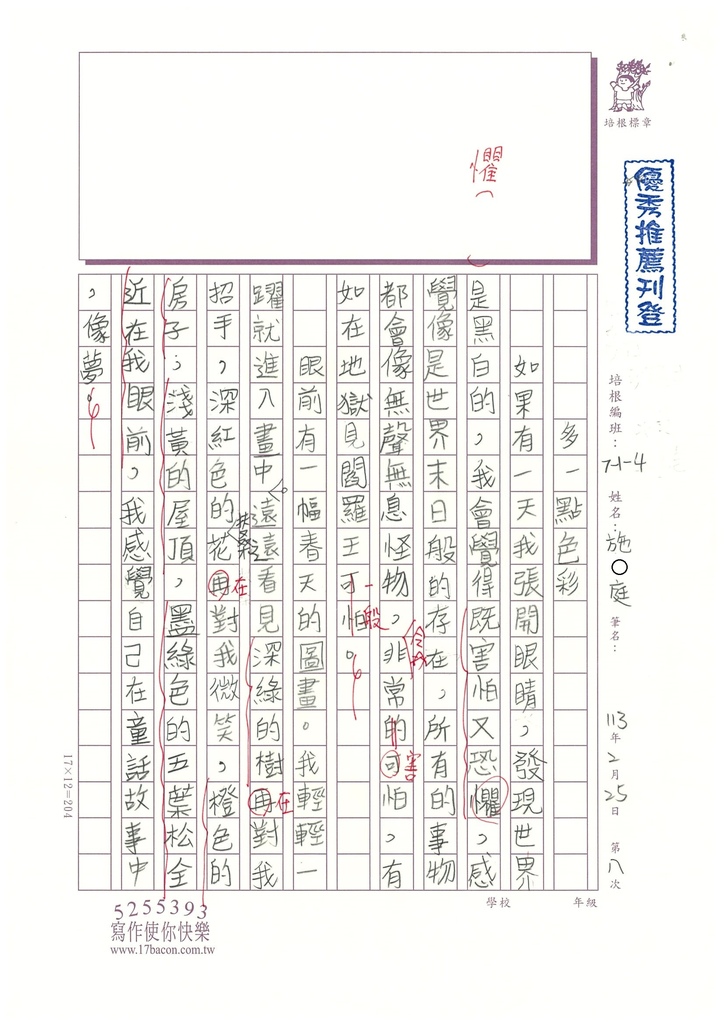 懼
培根標章
優秀推薦刊登
培根編班：7-1-4 姓名：施○庭 筆名： 113年2月25日 第八次
多一點色彩
如果有一天我張開眼睛，發現世界
是黑白的，我會覺得既害怕又恐懼，感
覺像是世界末日般的存在，所有的事物
都會像無聲無息怪物，非常的可怕，有
令我
害
如在地獄見閻羅王可怕。
一般
眼前有一幅春天的圖畫。我輕輕一
躍就進入畫中遠遠看見深綠的樹再對我
。
在
招手，深紅色的花再對我微笑，橙色的
在
房子，淺黃的屋頂，墨綠色的五葉松全
近在我眼前，我感覺自己在童話故事中
，像夢。
17×12=204
學校 年級
5255393
寫作使你快樂
www.17bacon.com.tw